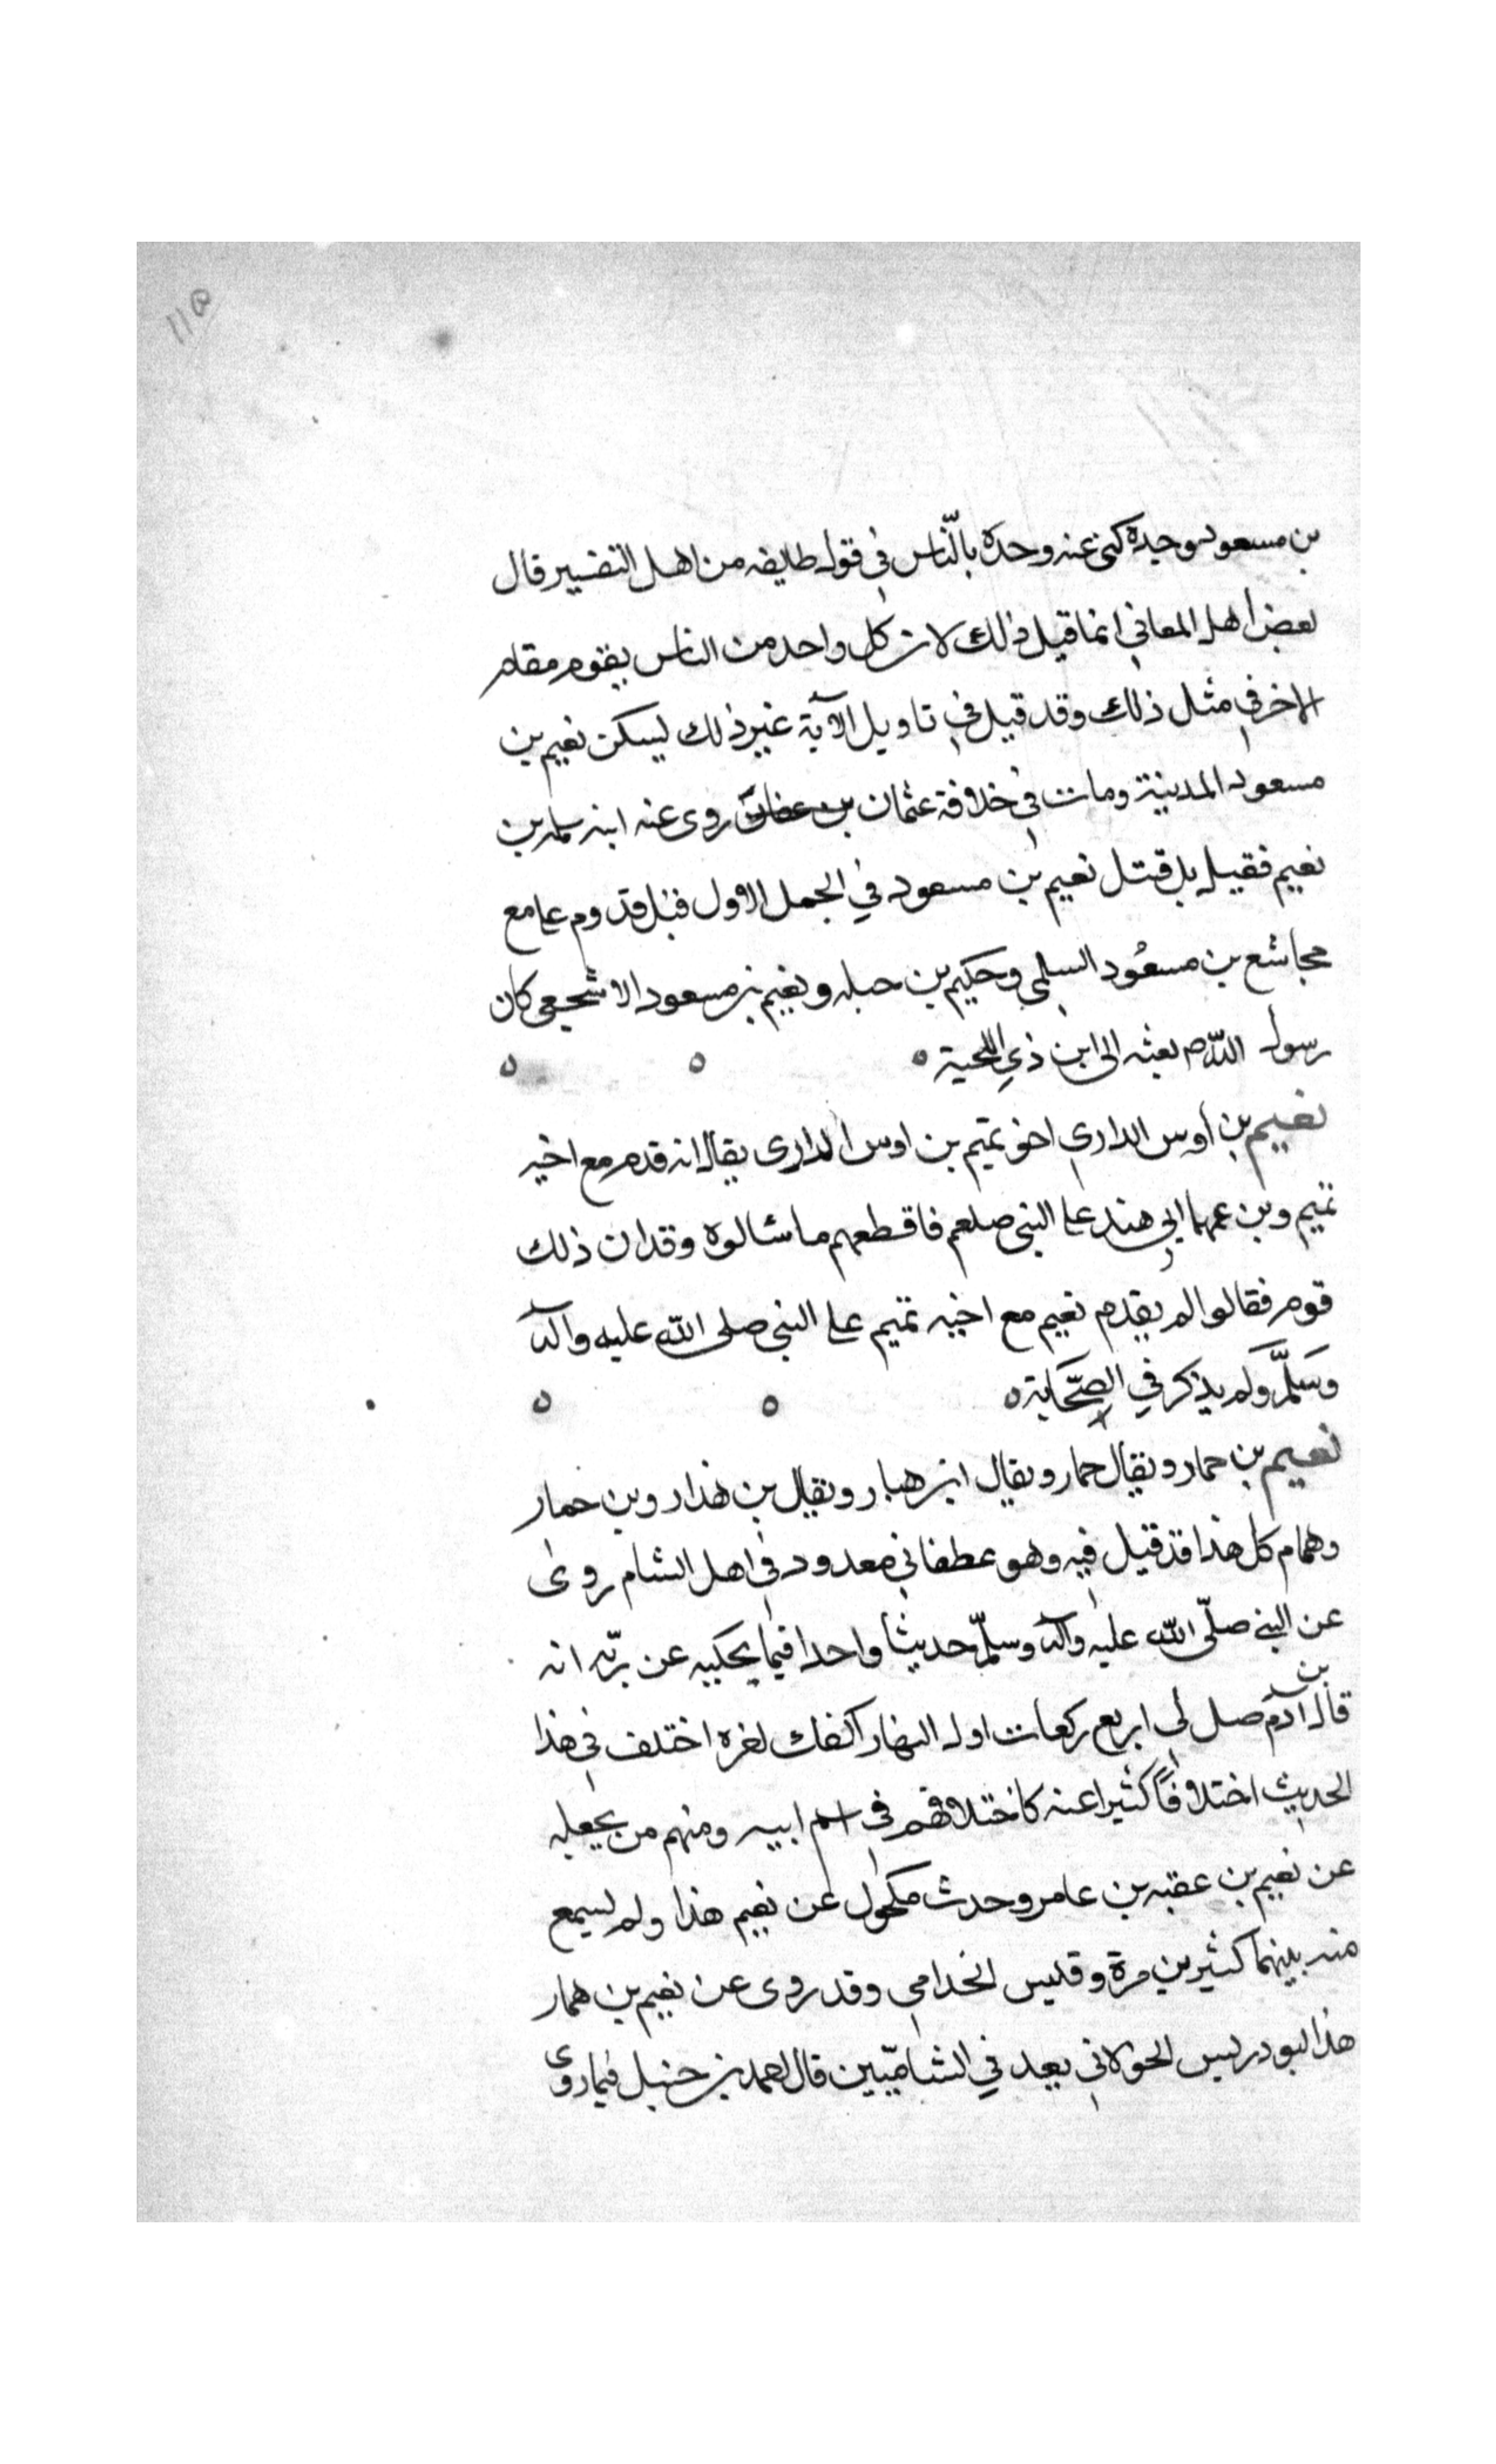 ١١٥
بن مسعود وحده كنى عنه وحده بالنّاس في قول طايفه من اهل التفسير قال
بعض أهل المعاني انما قيل ذلك لان كل واحد من الناس يقوم مقام
الاخر في مثل ذلك وقد قيل في تاويل الآية غير ذلك ليسكن نعيم بن
مسعود المدينة ومات في خلافة عثمان بن عفان روى عنه ابنه سلمه بن
نعيم فقيل بل قتل نعيم بن مسعود في الجمل الاول قبل قدوم على مع
مجاشع بن مسعُود السلمي وحكيم بن حبله ونعيم بن مسعود الاشجعي كان
رسول اللّه م بعثه الى ابن ذي اللحية ه ه ه
نعيم بن أوس الداري اخو تميم بن اوس الدارى يقال انه قدم مع اخيه
تميم وبن عمهما ابي هند على النبى صلعم فاقطعهم ما سالوه وقد ان ذلك
قوم فقالوا لم يقدم نعيم مع اخيه تميم على النبى صلى اللّه عليه وآله
وَسَلَّمَ ولم يذكر في الصّحَابة ه ه ه
نعيم بن حمار ويقال حمار ويقال ابن هبار ويقال بن هذار وبن خمار
وهمام كل هذا قد قيل فيه وهو عطفاني معدود في اهل الشام روى
عن النبي صلّى اللّه عليه وآله وسلّم حديثا واحدا فيما يحكيه عن ربّه انه
قال بن آدم صل لى اربع ركعات اول النهار اكفك لغره اختلف في هذا
الحديث اختلافًا كثيرا عنه كاختلافهم في اسم ابيه ومنهم من يجعله
عن نعيم بن عقبه بن عامر وحدث مكحول عن نعيم هذا ولم يسمع
منه بينهما كثير بن مرة وقليس الخدامي وقد روى عن نعيم بن همار
هذا ابو دريس الحولاني يعد في الشاميّين قال احمد بن حنبل فيما روى